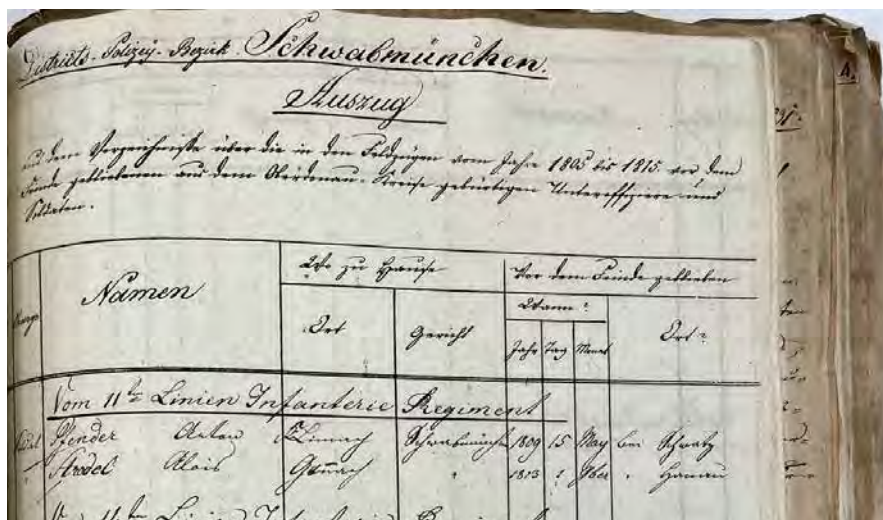 Districts-Polizey-Bezirk Schwabmünchen.
Auszug
aus dem Verzeichnisse über die in den Feldzügen vom Jahre 1805 bis 1815 vor dem
Feinde gebliebenen aus dem Oberdonau-Kreise gebürtigen Unteroffiziere und
Soldaten.
Namen
Wo zu Hause
Vor dem Feinde geblieben
Ort
Gericht
Wann?
Ort?
Jahr Tag Monat
Vom 11te Linien Infanterie Regiment
Pfender Anton Schwabmünchen 1809 15 May bei Schwatz
Strodel Alois " 1813 ? 8ber " Hanau
A.